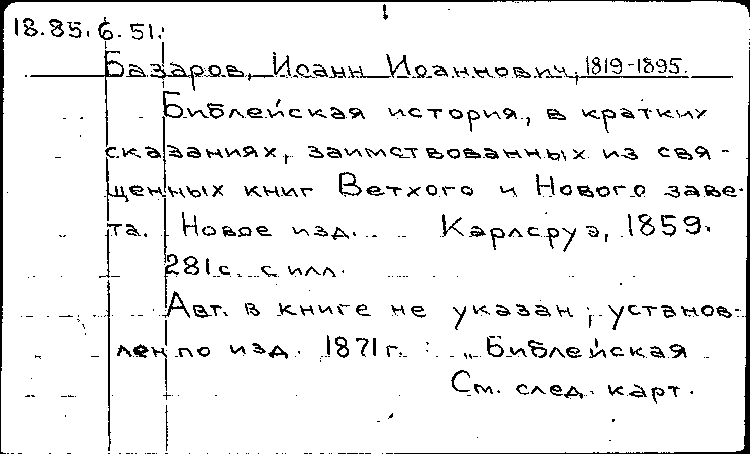 18.85.6.51.
Базаров, Иоанн Иоаннович, 1819-1895.
Библейская история, в кратких
сказаниях, заимствованных из свя-
щенных книг Ветхого и Нового заве-
та. Новое изд. Карлсруэ, 1859.
281 с. с илл.
Авт. в книге не указан; установ-
лен по изд. 1871 г. : „Библейская
См. след. карт.